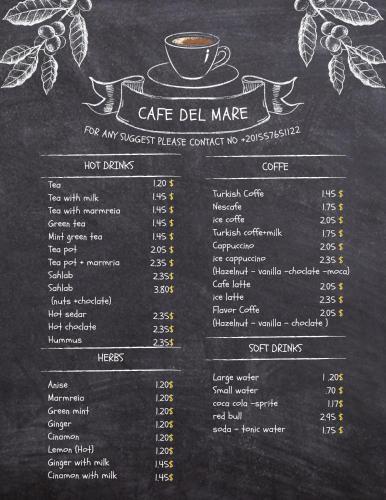 CAFE DEL MARE
FOR ANY SUGGEST PLEASE CONTACT NO +201557651122
HOT DRINKS
Tea 1.20 $
Tea with milk 1.45 $
Tea with marmreia 1.45 $
Green tea 1.45 $
Mint green tea 1.45 $
Tea pot 2.05 $
Tea pot + marmria 2.35 $
Sahlab 2.35$
Sahlab 3.80$
(nuts +choclate)
Hot sedar 2.35$
Hot choclate 2.35$
Hummus 2.35$
HERBS
Anise 1.20$
Marmreia 1.20$
Green mint 1.20$
Ginger 1.20$
Cinamon 1.20$
Lemon (Hot) 1.20$
Ginger with milk 1.45$
Cinamon with milk 1.45$
COFFE
Turkish Coffe 1.45 $
Nescafe 1.75 $
ice coffe 2.05 $
Turkish coffe+milk 1.75 $
Cappuccino 2.05 $
ice cappuccino 2.35 $
(Hazelnut - vanilla -choclate -moca)
Cafe latte 2.05 $
ice latte 2.35 $
Flavor Coffe 2.05 $
(Hazelnut - vanilla - choclate )
SOFT DRINKS
Large water 1 .20$
Small water .70 $
coca cola -sprite 1.17$
red bull 2.95 $
soda - tonic water 1.75 $